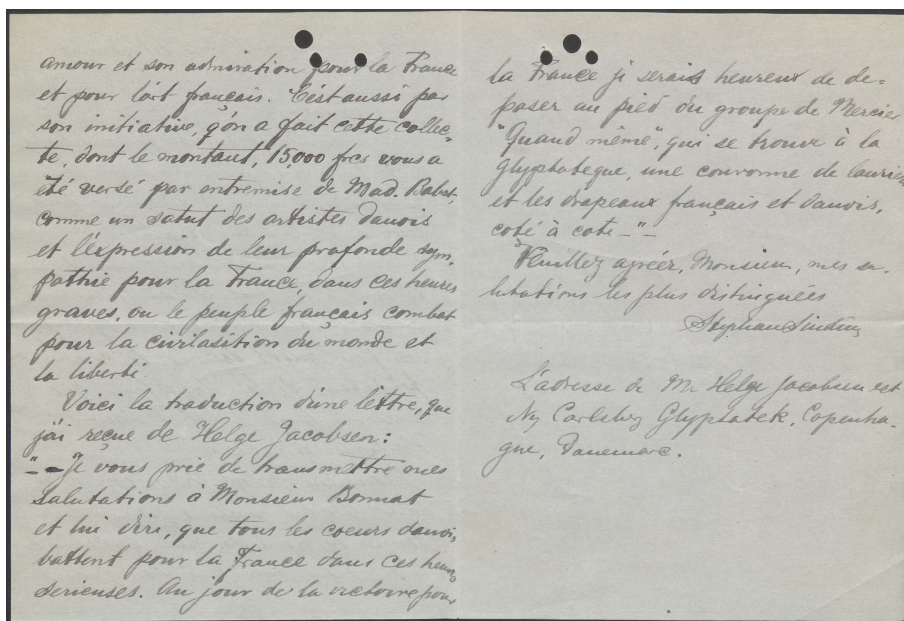 amour et son admiration pour la France
et pour l'art français. C'est aussi par
son initiative, q'on a fait cette collec-
te, dont le montant, 15,000 frcs vous a
été versé par entremise de Mad. Rabst,
comme un salut des artistes danois
et l'expression de leur profonde sym-
pathie pour la France, dans ces heures
graves, ou le peuple français combat
pour la civilasition du monde et
la liberté.
Voici la traduction d'une lettre, que
j'ai reçue de Helge Jacobsen:
"—Je vous prie de transmettre mes
salutations à Monsieur Bonnat
et lui dire, que tous les coeurs danois,
battent pour la France dans ces heures
serieuses. Au jour de la victoire pour
la France je serais heureux de de-
poser au pied du groupe de Mercier
"Quand même", qui se trouve à la
Glyptoteque, une couronne de lauriers
et les drapeaux français et danois,
coté à coté —"—
Veuillez agréer, Monsieur, mes sa-
lutations les plus distinguées
Stephan Sinding
L'adresse de Mr Helge Jacobsen est
Ny Carlsberg Glyptotek, Copenha-
gue, Danemarc.